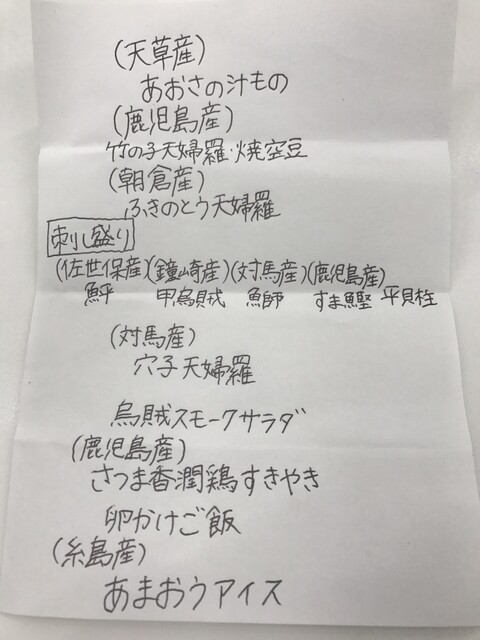 (天草産)
あおさの汁もの
(鹿児島産)
竹の子天婦羅・焼空豆
(朝倉産)
ふきのとう天婦羅
刺し盛り
(佐世保産)(鐘崎産)(対馬産)(鹿児島産)
鮃 甲烏賊 魚師 すま鰹 平貝柱
(対馬産)
穴子天婦羅
烏賊スモークサラダ
(鹿児島産)
さつま香潤鶏すきやき
卵かけご飯
(糸島産)
あまおうアイス